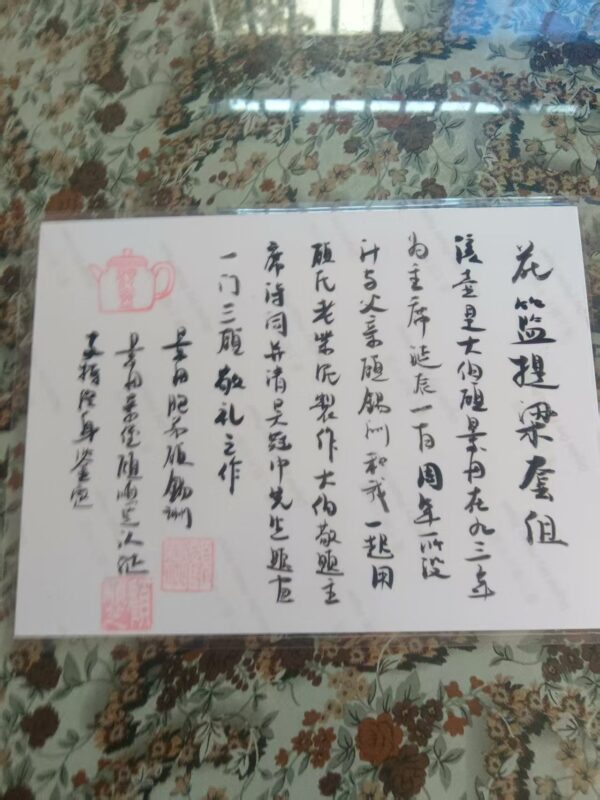 花篮提梁套组
该壶是大伯顾景舟在九三年
为主席诞辰一百周年所设
计与父亲顾锡洲和我一起用
顾氏老柴泥製作大伯敬题主
席诗词并请吴冠中先生题画
一门三顾敬礼之作
景舟胞弟顾锡洲
景舟亲侄顾顺